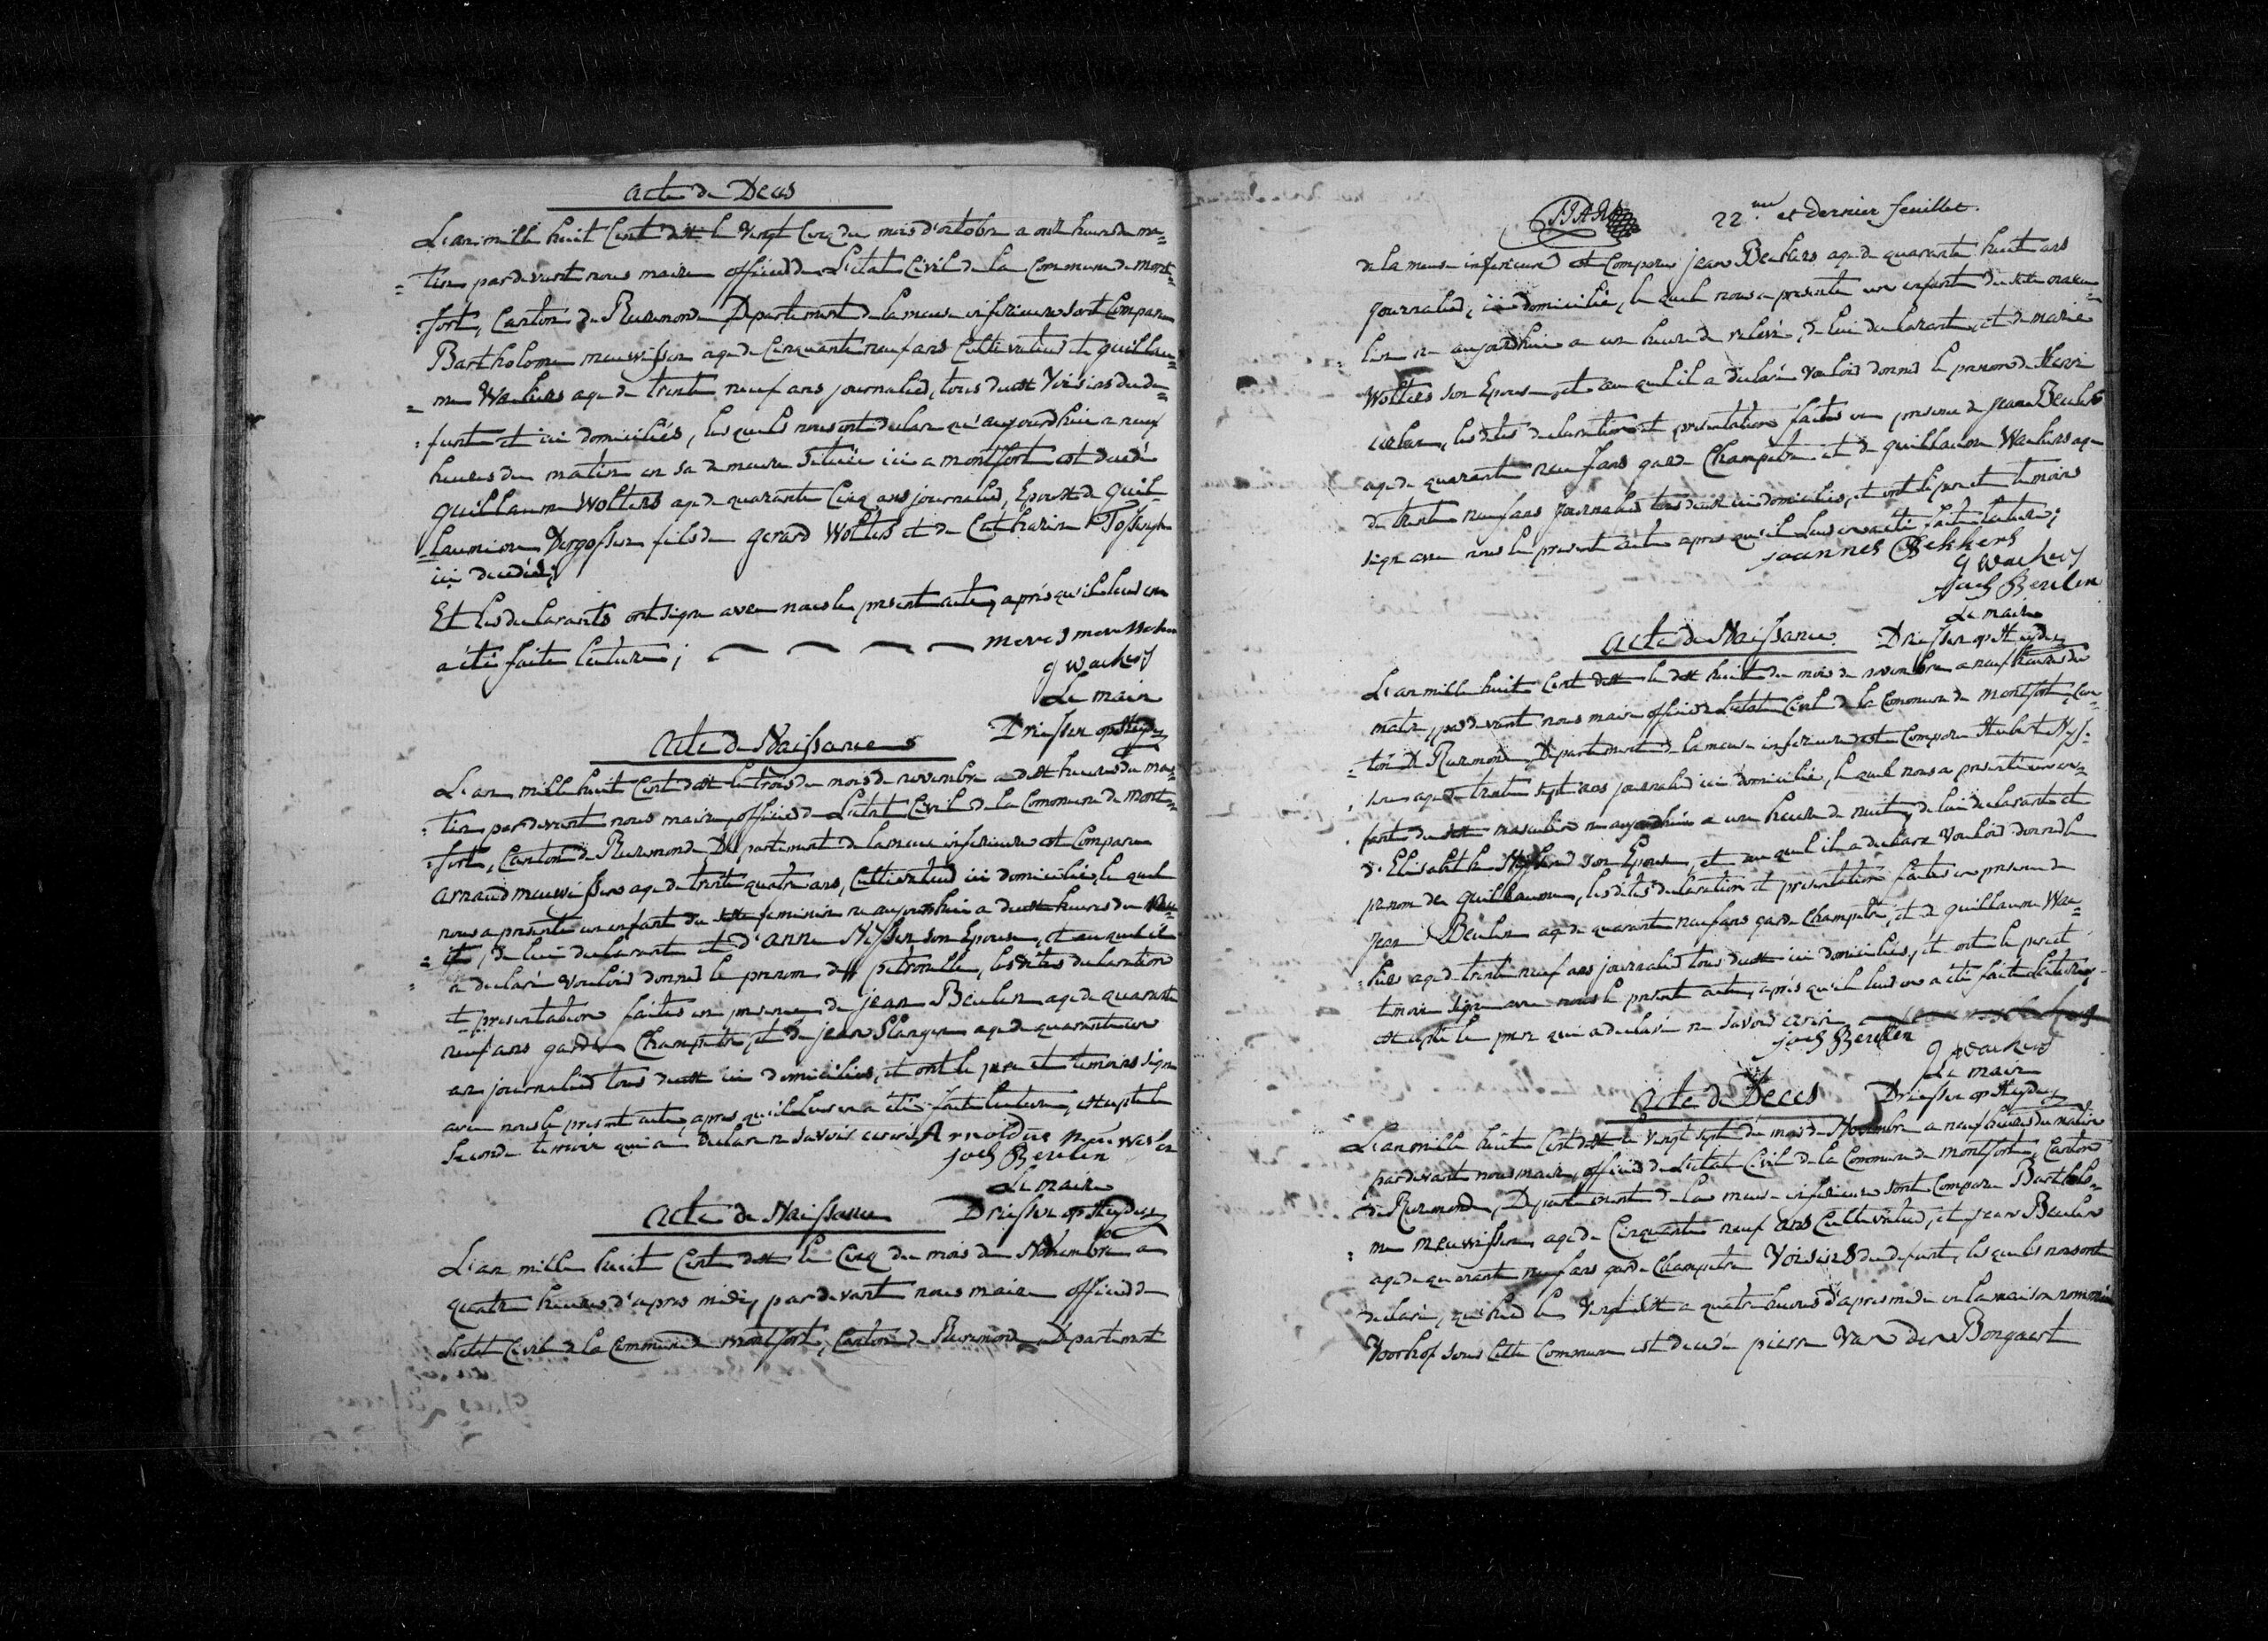 Acte de Deces
L'an mille huit Cent dix le vingt Cinq du mois d'octobre a onze heures du ma-
= tin par devant nous maire officier de L'etat Civil de la Commune de mont=
= fort, Canton de Ruremonde Departement de la meuse inferieure sont Comparu
Bartholome meuwissen age de Cinquante neuf ans Cultivateur et guillau=
= me Wackers age de trente neuf ans journalier, tous deux voisins du de=
= funt et ici domiciliés, les quels nous ont declare qu'aujourdhui a neuf
heures du matin en sa demeure située ici a montfort est decedé
guillaume Wolters age de quarante Cinq ans journalier, Epoux de guil-
laumine fils de gerard Wolters et de Catharine
ici decedés;
Et les declarants ont signe avec nous le present acte, après qu'il leur en
a été faite lecture;
g wackers
Le maire
Driessen op Heyden
Acte de Naissance
L'an mille huit Cent dix le trois du mois de novembre a dix heures du ma=
= tin par devant nous maire, officier de L'etat Civil de la Commune de mont=
= fort, Canton de Ruremonde Departement de la meuse inferieure est Comparu
arnaud meuwissen age de trente quatre ans, Cultivateur ici domicilié, le quel
nous a presente un enfant du sexe feminin ne aujourdhui a deux heures de nu=
= it, de lui declarant et d'anne Nyssen son Epouse, et auquel il
a declaré vouloir donner le prenom de petronille, les dites declaration
et presentation faites en presence de jean Beulen age de quarante
neuf ans garde Champetre, et de jean Slangen age de quarante un
an journalier tous deux ici domiciliés, et ont le pere et temoins signe
avec nous le present acte, apres qu'il leur en a été faite lecture, excepte le
seconde temoin qui a declare ne savoir ecrire Arnoldus
joes Beulen
Le maire
Driessen op Heyden
Acte de Naissance
L'an mille huit Cent dix le Cinq du mois de Novembre a
quatre heures d'apres midi, par devant nous maire officier de
L'etat Civil de la Commune de montfort, Canton de Ruremonde Departement
22.me et dernier feuillet.
de la meuse inferieure est Comparu jean Beckers age de quarante huit ans
journalier, ici domicilié, le quel nous a presente un enfant du sexe mascu=
= lin ne aujourdhui a une heure de relevé, de lui declarant, et de marie
Wolters son Epouse, et au quel il a declaré vouloir donner le prenom de Henri
les dites declaration et presentation faites en presence de jean Beulen
age de quarante neuf ans garde Champetre et de guillaume Wackers age
de trente neuf ans journalier tous deux ici domiciliés, et ont le pere et temoins
signe avec nous le present acte apres qu'il leur en a été faite lecture;
joannes Bekkers
g wackers
joes Beulen
Le maire
Driessen op Heyden
Acte de Naissance
L'an mille huit Cent dix le dix huit du mois de novembre a neuf heures du
matin, par devant nous maire officier de L'etat Civil de la Commune de montfort, Can=
= ton de Ruremonde Departement de la meuse inferieure est Comparu Hubert Nys-
sen age de trente sept ans journalier ici domicilié, le quel nous a presente un en=
fant du sexe masculin ne aujourdhui a une heure de nuit, de lui declarant et
d'Elisabeth son Epouse, et au quel il a declare vouloir donner le
prenom de guillaume, les dites declaration et presentation faites en presence de
jean Beulen age de quarante neuf ans garde Champetre, et de guillaume Wac=
= kers age de trente neuf ans journalier tous deux ici domiciliés, et ont le
temoins signe avec nous le present acte, après qu'il leur en a été faite lecture,
excepté le pere qui a declaré ne savoir ecrire
joes Beulen
g wackers
Le maire
Driessen op Heyden
Acte de Deces
L'an mille huit Cent dix le vingt sept du mois de Novembre a neuf heures du matin
par devant nous maire, officier de L'etat Civil de la Commune de montfort, Canton
de Ruremonde, Departement de la meuse inferieure sont Comparu Bartholo=
= me meuwissen age de Cinquante neuf ans Cultivateur, et jean Beulen
age de quarante neuf ans garde Champetre voisins du defunt, les quels nous ont
declaré, qu'hier le vingt six a quatre heures d'apres midi en la maison nommée
Voorhof sous cette Commune est decedé pierre Van den Bongaert